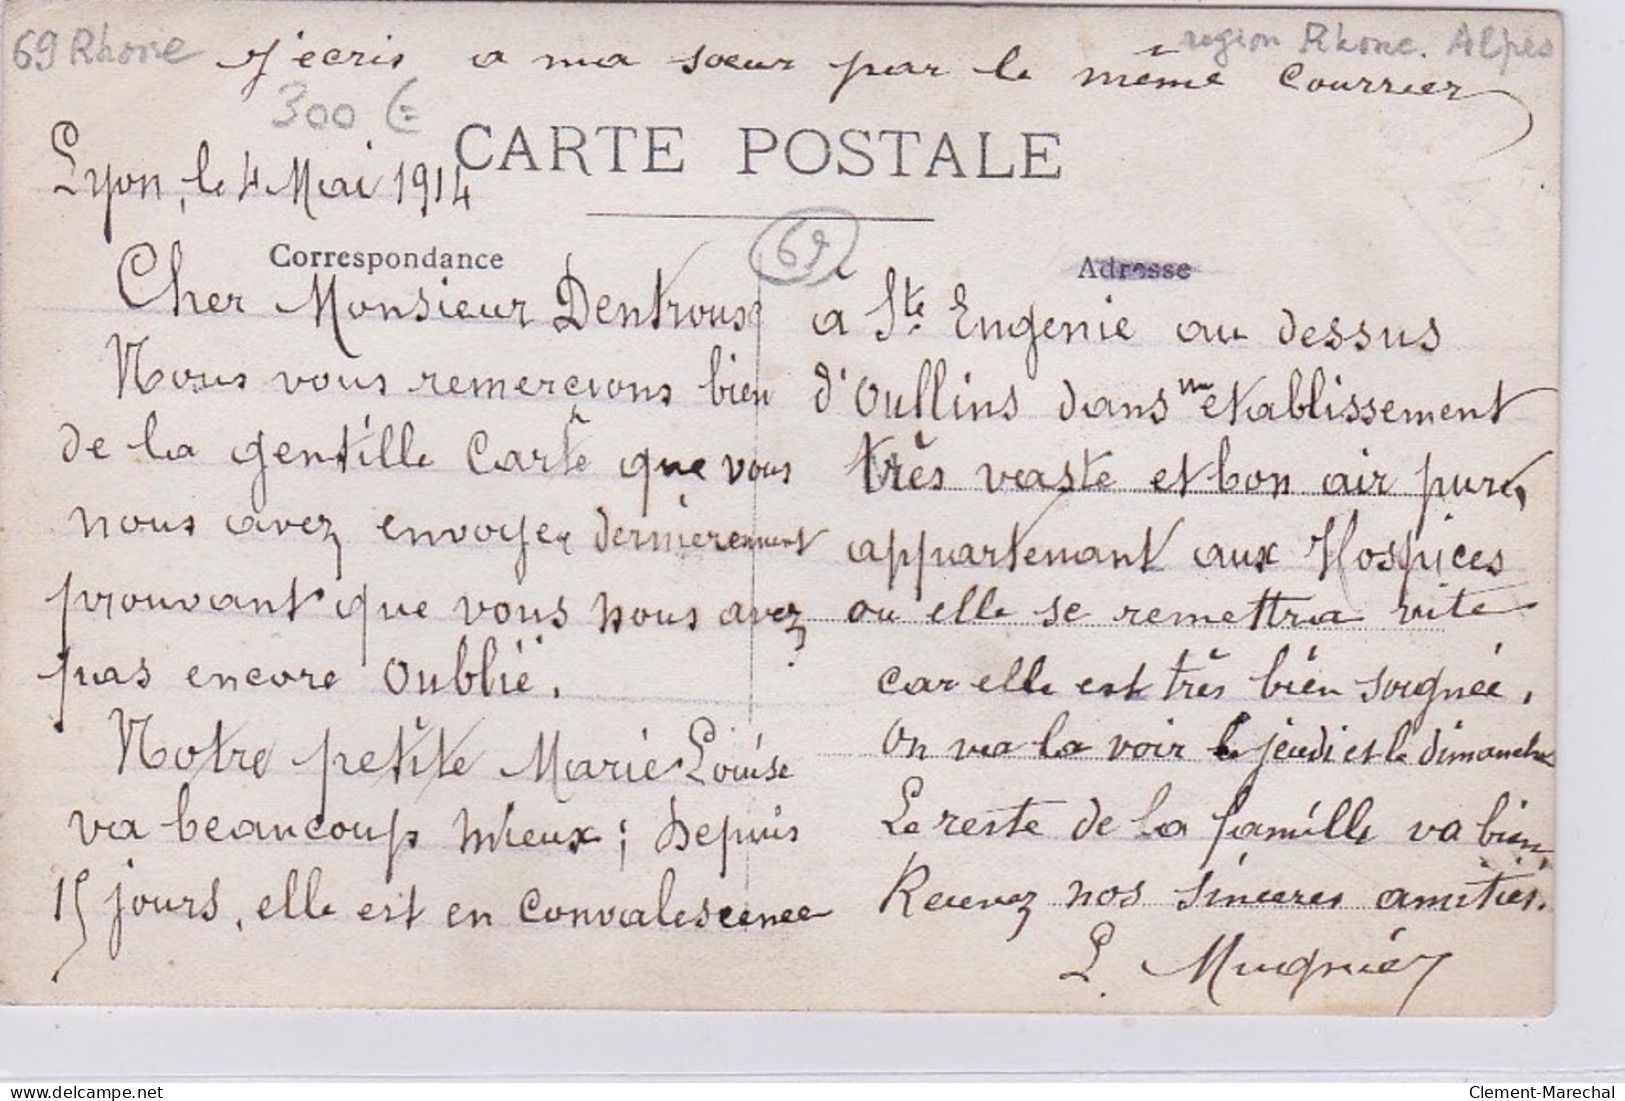 69 Rhone
region Rhone. Alpes
j'ecris a ma sœur par le même Courrier
300 €
CARTE POSTALE
Lyon, le 4 Mai 1914
69
Correspondance
Adresse
Cher Monsieur Dentroux
Nous vous remercions bien
de la gentille Carte que vous
nous avez envoyer dernierement
prouvant que vous nous avez
pas encore oublié.
Notre petite Marie Louise
va beaucoup mieux; Depuis
15 jours, elle est en convalescence
à Ste. Eugenie au dessus
d'Oullins dans un etablissement
très vaste et bon air pure,
appartenant aux Hospices
ou elle se remettra vite
car elle est très bien soignée.
On va la voir le jeudi et le dimanche
Le reste de la famille va bien,
Recevez nos sincères amitiés.
L. Mugnier
delcampe.net
Clement-Marechal